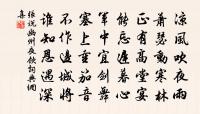 涼風吹夜雨
蕭瑟動寒林
正有高堂宴
能忘遲暮心
軍中宜劍舞
塞上重笳音
不作邊城將
誰知恩遇深
張說幽州夜飲詞
集